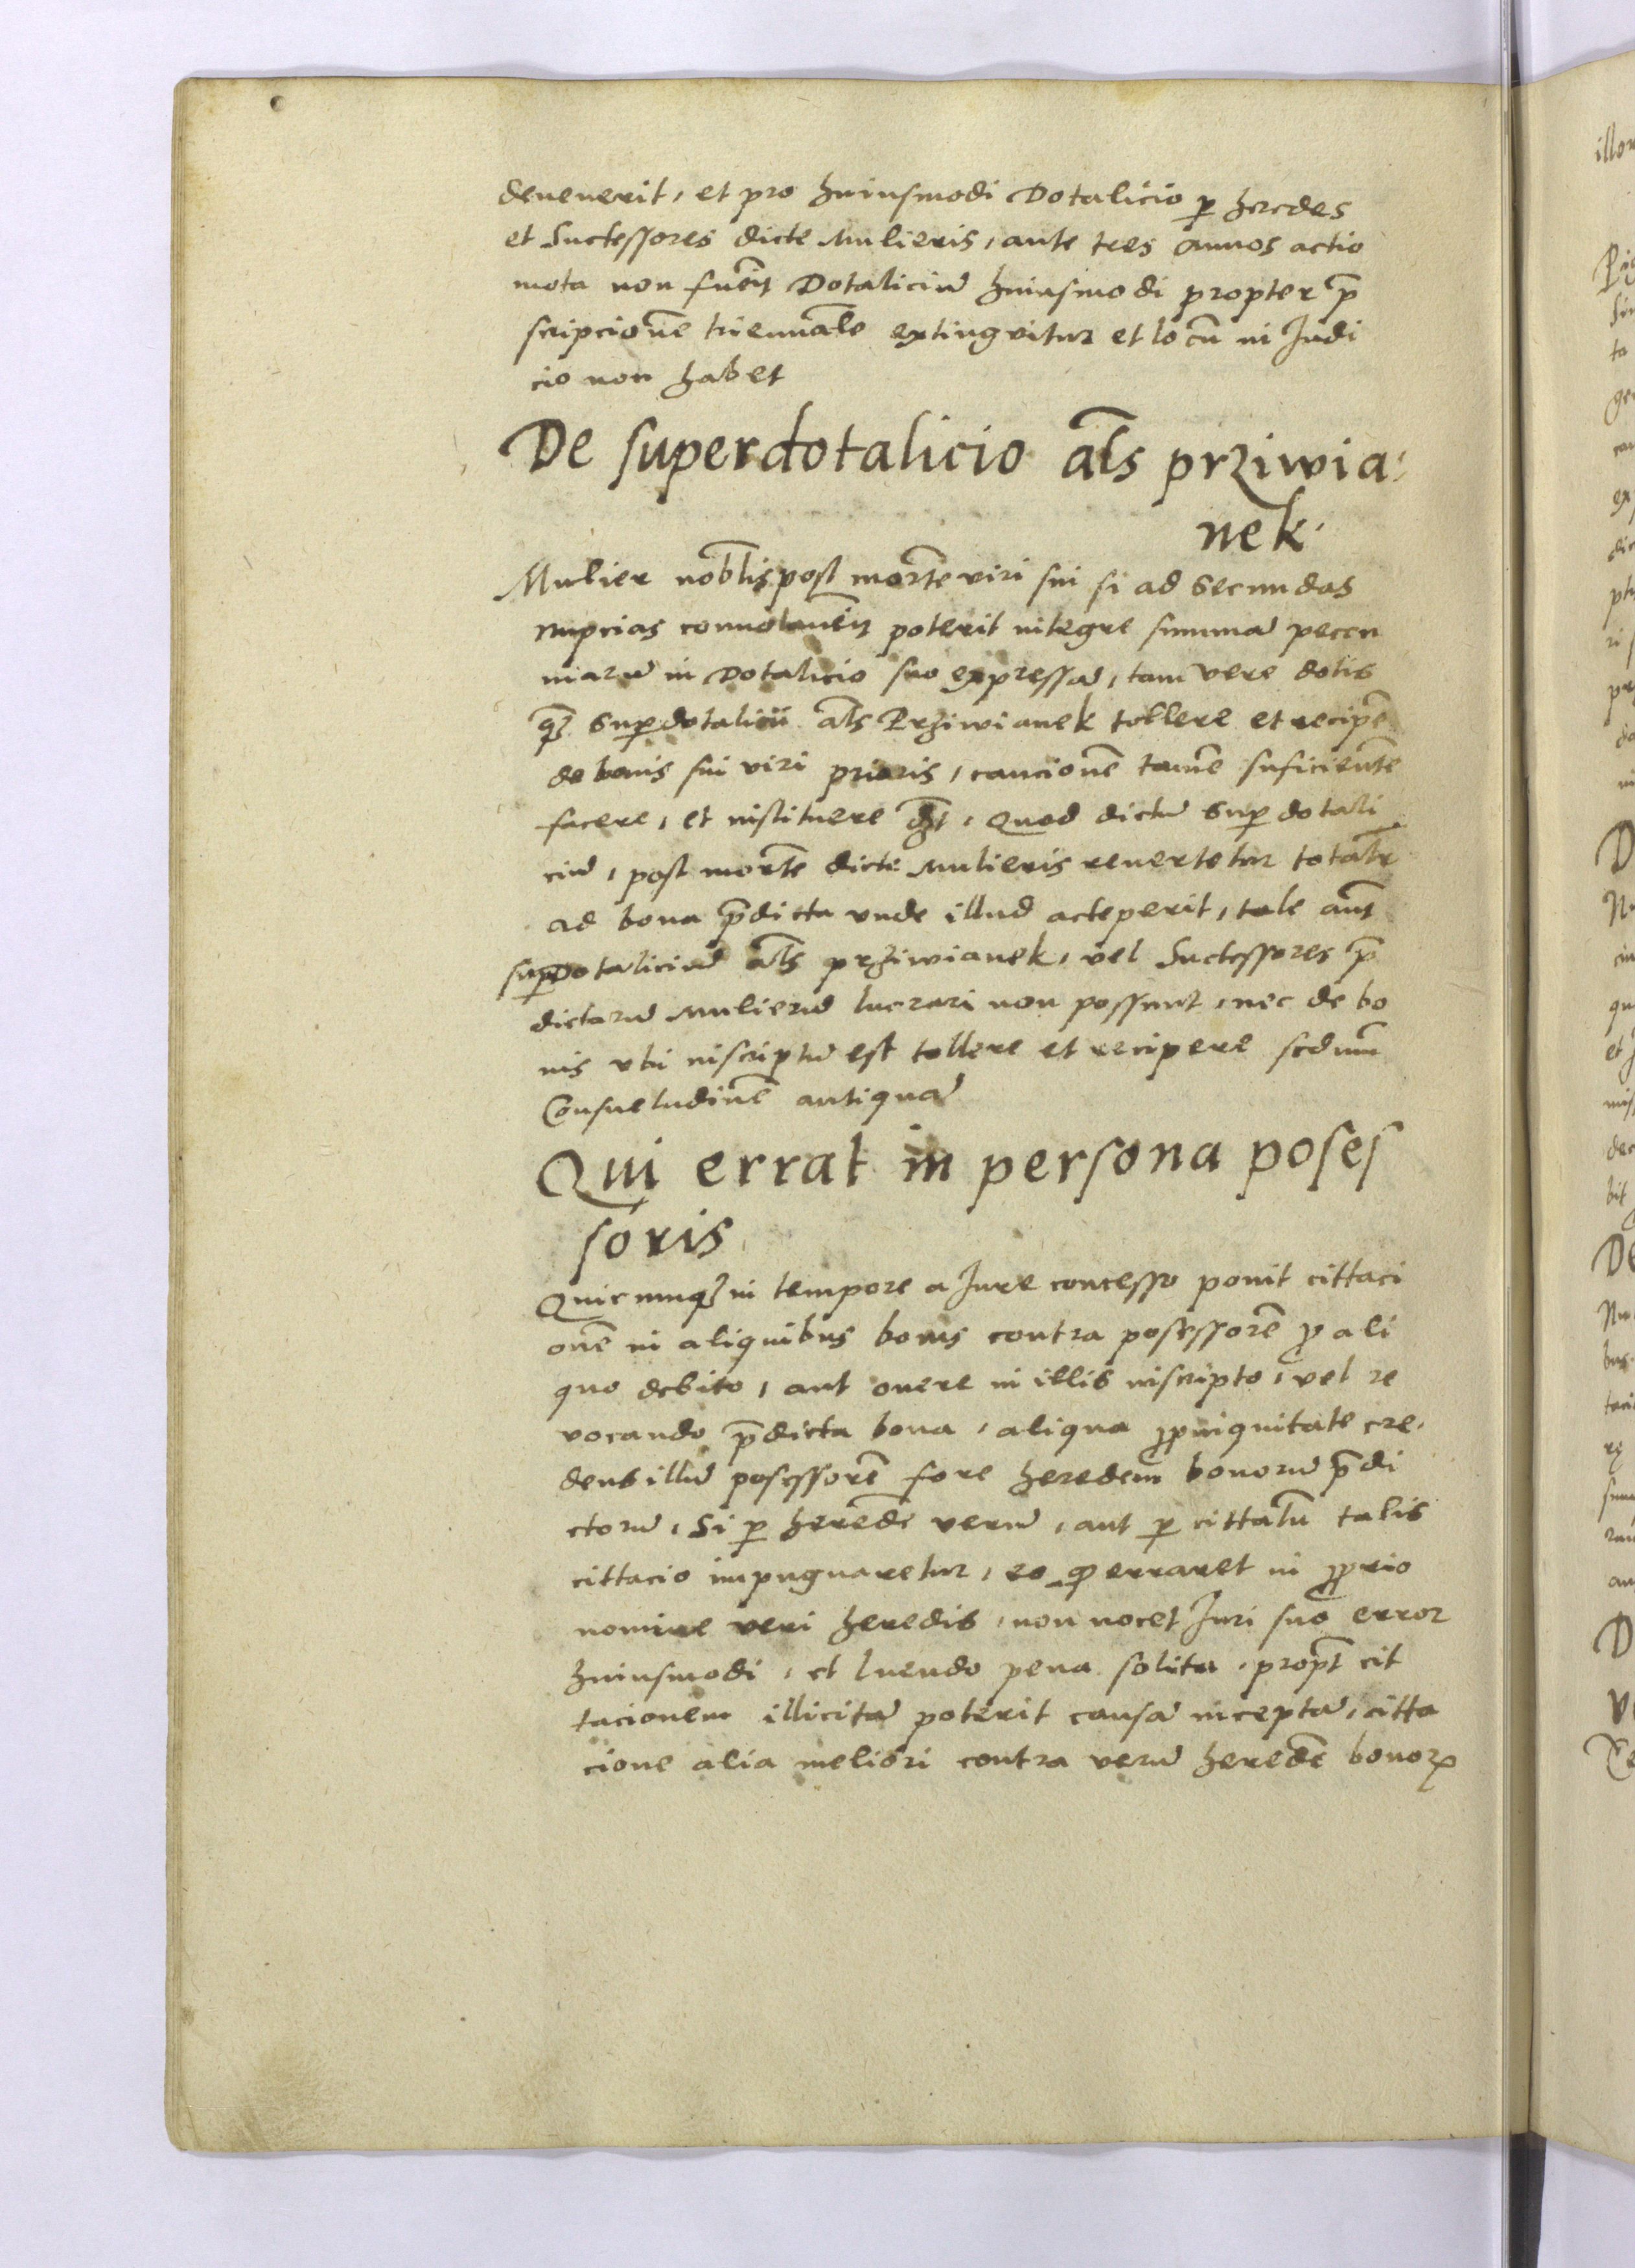 devenerit, et pro huiusmodi Dotalicio ꝑ heredes
et Suctessores dicte Mulieris, ante tres annos actio
mota non fuēit Dotaliciū huiusmodi propter p̄
scripcionē triennalē extingvitur et locū in Judi
cio non habet
De superdotalicio al̄s prziwia:
nek.
Mulier nobl̄is post mortē viri sui si ad secundas
nupcias convolavēit poterit integre summā peccu
niarū in Dotalicio suo expressā, tam vere dotis
qꝫ Suꝑdotalicii al̄s Prziwianek tollere et recipē
de bonis sui viri prioris, caucionē tamē suficientē
facere, et instituere dꝫt, Quod dictū Suꝑ dotali
ciū, post mortē dicte Mulieris revertetur totalr̄
ad bona p̄dicta unde illud acteperit, tale aūt
suꝑdotaliciū al̄s prziwianek, vel Suctessores p̄
dictarū Mulierū lucrari non possunt, nec de bo
nis ubi inscriptū est tollere et recipere scdum̄
Consuetudinē antiquā
Qui errat in persona poses
soris
Quicunqꝫ in tempore a Jure concesso ponit cittaci
onē in aliquibus bonis contra posessorē ꝓ ali
quo debito, aut onere in illis inscripto, vel re
vocando p̄dicta bona, aliqua ꝓpinquitate cre,
dens illū posessorē fore heredem bonorū p̄di
ctorū, Si ꝑ heredē verū, aut ꝑ cittatū talis
cittacio impugnaretur, eo ꝙ erraret in ꝓprio
nomine veri heredis, non nocet Juri suo error
huiusmodi, et luendo pena solita, propt̄ cit
tacionem illicitā poterit causā inceptā, citta
cione alia meliori contra verū heredē bonoꝝ